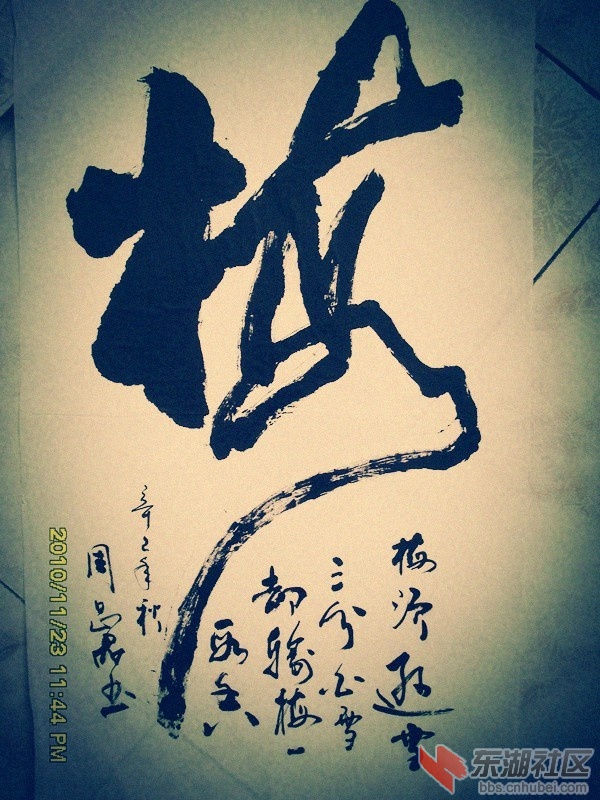 梅
梅須遜雪
三分白雪
卻輸梅一
段香
辛巳年秋
周
书
2010/11/23 11:44 PM
东湖社区
bbs.cnhubei.com